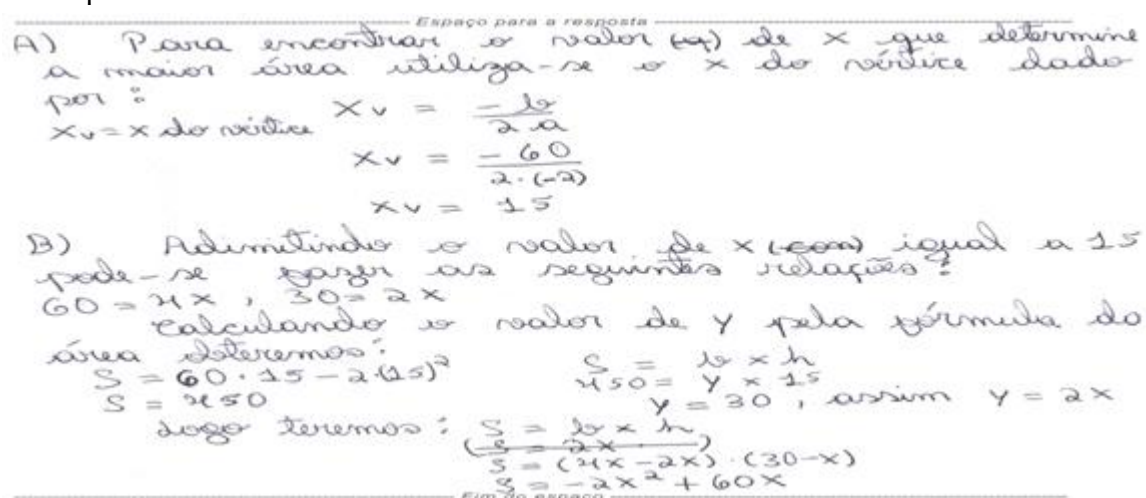 Espaço para a resposta
A) Para encontrar o valor de x que determine
a maior área utiliza-se o x do vértice dado
por :
Xv = x do vértice Xv = -b / 2a
Xv = -60 / 2·(-2)
Xv = 15
B) Adimitindo o valor de x (com) igual a 15
pode-se fazer as seguintes relações:
60 = 4x , 30 = 2x
Calculando o valor de y pela fórmula da
área obteremos:
S = 60 · 15 - 2·(15)² S = b x h
S = 450 450 = y x 15
y = 30 , assim y = 2x
Logo teremos : S = b x h
(S = 2x )
S = (4x - 2x) · (30 - x)
S = -2x² + 60x
Fim do espaço